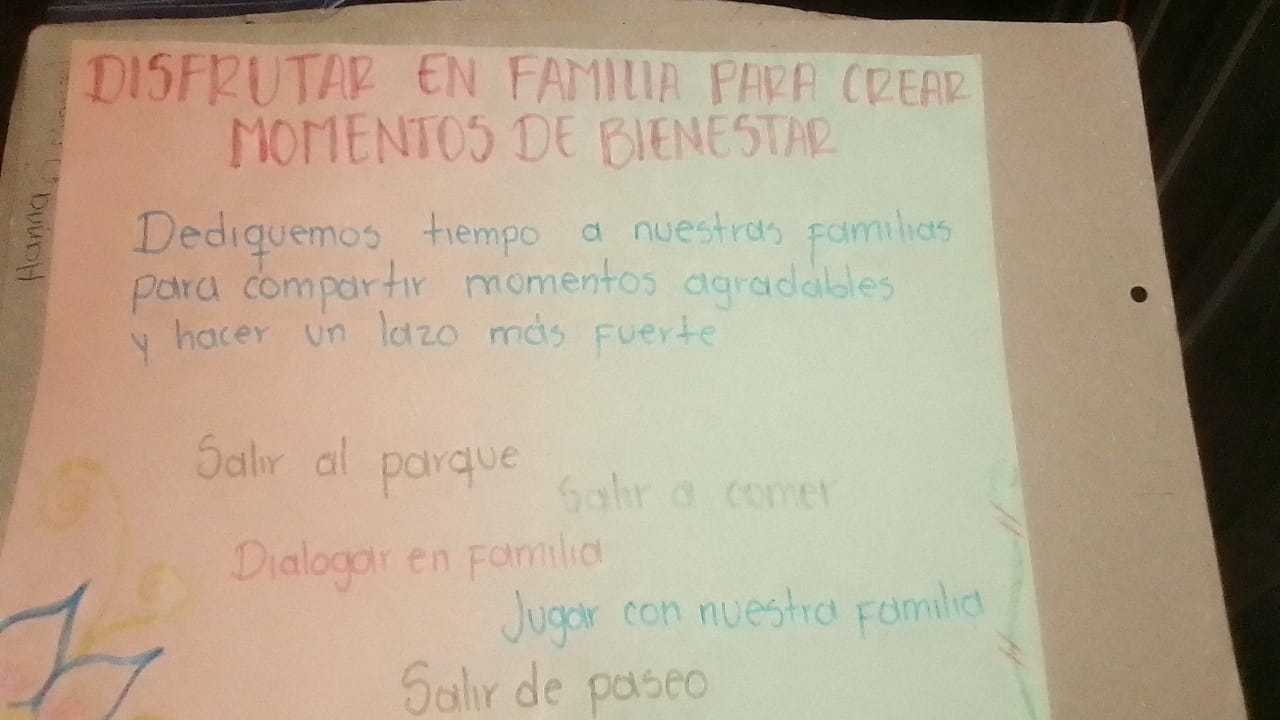 DISFRUTAR EN FAMILIA PARA CREAR
MOMENTOS DE BIENESTAR
Dediquemos tiempo a nuestras familias
para compartir momentos agradables
y hacer un lazo más fuerte
Salir al parque
Salir a comer
Dialogar en familia
Jugar con nuestra familia
Salir de paseo
Hanna